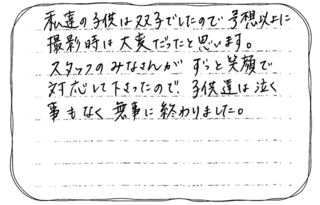 私達の子供は双子でしたので予想以上に
撮影時は大変だったと思います。
スタッフのみなさんが ずっと笑顔で
対応して下さったので 子供達は泣く
事もなく 無事に終わりました。